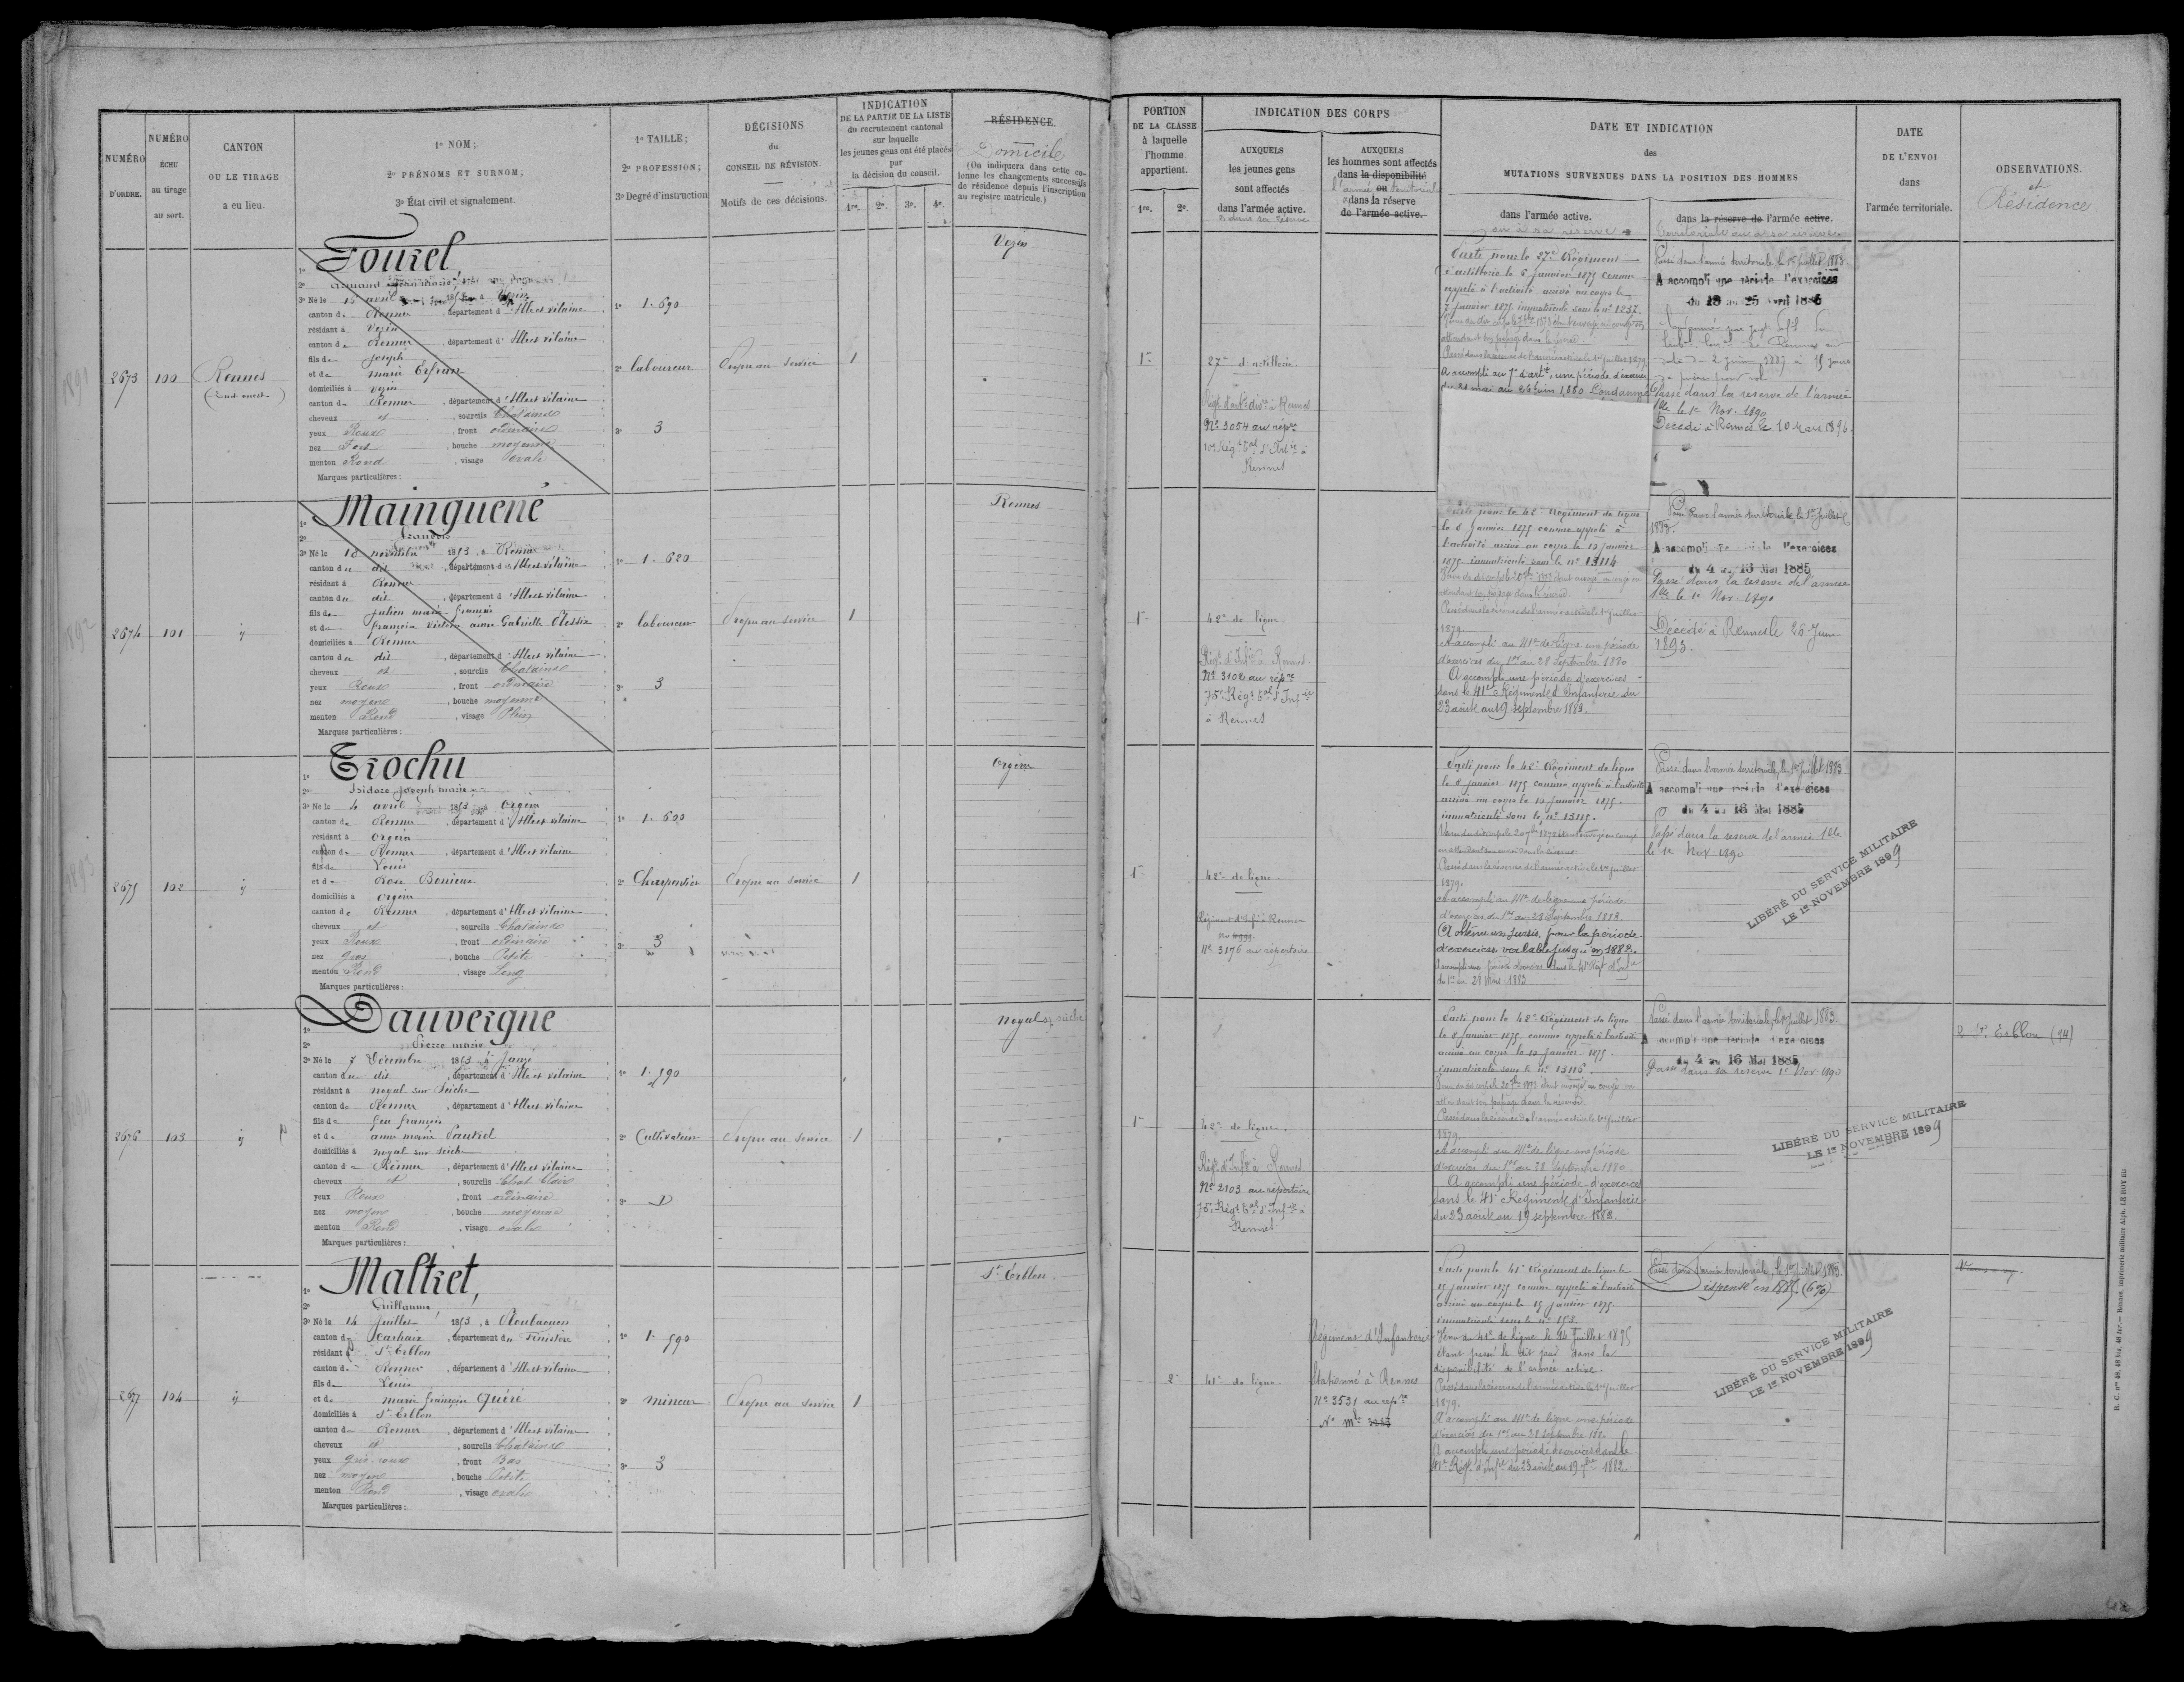 NUMÉRO
D'ORDRE.
NUMÉRO
ÉCHU
au tirage
au sort.
CANTON
OU LE TIRAGE
a eu lieu.
1º NOM;
2º PRÉNOMS ET SURNOM;
3º État civil et signalement.
1º TAILLE;
2º PROFESSION;
3º Degré d'instruction
DÉCISIONS
du
CONSEIL DE RÉVISION.
Motifs de ces décisions.
INDICATION
DE LA PARTIE DE LA LISTE
du recrutement cantonal
sur laquelle
les jeunes gens ont été placés
par
la décision du conseil.
1re. 2e. 3e. 4e.
RÉSIDENCE.
Domicile
(On indiquera dans cette co-
lonne les changements successifs
de résidence depuis l'inscription
au registre matricule.)
PORTION
DE LA CLASSE
à laquelle
l'homme
appartient.
1re. 2e.
INDICATION DES CORPS
AUXQUELS
les jeunes gens
sont affectés
dans l'armée active.
AUXQUELS
les hommes sont affectés
dans la disponibilité
l'armée ou territoriale
dans la réserve
de l'armée active.
DATE ET INDICATION
des
MUTATIONS SURVENUES DANS LA POSITION DES HOMMES
dans l'armée active.
ou à sa réserve
dans la réserve de l'armée active.
territoriale ou à sa réserve
DATE
DE L'ENVOI
dans
l'armée territoriale.
OBSERVATIONS.
et
Résidence
2673 100 Rennes
(Sud-ouest)
1º Fourel
2º Armand Jean marie
3º Né le 15 avril 1853 à Vezin
canton de Rennes, département d'Ille et vilaine
résidant à Vezin
canton de Rennes, département d'Ille et vilaine
fils de Joseph
et de marie
domiciliés à Vezin
canton de Rennes, département d'Ille et vilaine
cheveux et, sourcils Chatains
yeux Roux, front ordinaire
nez Fort, bouche moyenne
menton Rond, visage Ovale
Marques particulières :
1º 1.690
2º laboureur
3º 3
Propre au service
1
Vezin
1re
27e d'artillerie
Régt d'artie à Rennes
Nº 3054 au répre
Rennes
Parti pour le 27e Régiment
d'artillerie le 6 janvier 1875 comme
appelé à l'activité arrivé au corps le
7 janvier 1875 immatriculé sous le nº 1257.
Passé dans la réserve de l'armée active le 1er Juillet 1879
A accompli au 7e d'artie, une période d'exercices
du 31 mai au 26 juin 1880 Condamné
Passé dans l'armée territoriale, le 1er juillet 1883.
A accompli une période d'exercices
du 13 au 25 avril 1886
Passé dans la reserve de l'armée
tle le 1e Nov. 1890
Décédé à Rennes le 10 Mars 1896.
2674 101 ij
1º Mainguené
2º François
3º Né le 18 novembre 1853, à Rennes
canton du dit, département d'Ille et vilaine
résidant à Rennes
canton du dit, département d'Ille et vilaine
fils de julien marie françois
et de françoise victoire anne Gabrielle Plessix
domiciliés à Rennes
canton du dit, département d'Ille et vilaine
cheveux et, sourcils Chatains
yeux Roux, front ordinaire
nez moyen, bouche moyenne
menton Rond, visage Plein
Marques particulières :
1º 1.620
2º laboureur
3º 3
Propre au service
1
Rennes
1re
42e de ligne
Régt d'Infie à Rennes
Nº 3102 au répre
75e Régt tal d'Infie
à Rennes
Parti pour le 42e Régiment de ligne
le 8 janvier 1875 comme appelé à
l'activité arrivé au corps le 10 janvier
1875 immatriculé sous le nº 13114
Passé dans la réserve de l'armée active le 1er Juillet
1879.
A accompli au 41e de ligne une période
d'exercices du 1er au 28 Septembre 1880
A accompli une période d'exercices
dans le 41e Régiment d'Infanterie du
23 août au 19 septembre 1882.
Passé dans l'armée territoriale, le 1er Juillet
1883.
A accompli une période d'exercices
du 4 au 16 Mai 1885
Passé dans la reserve de l'armée
tle le 1e Nov. 1890
Décédé à Rennes le 26 Juin
1893.
2675 102 ij
1º Trochu
2º Isidore joseph marie
3º Né le 4 avril 1853 à Orgères
canton de Rennes, département d'Ille et vilaine
résidant à Orgères
canton de Rennes, département d'Ille et vilaine
fils de Louis
et de Rose
domiciliés à Orgères
canton de Rennes, département d'Ille et vilaine
cheveux et, sourcils Chatains
yeux Roux, front ordinaire
nez gros, bouche Petite
menton Rond, visage Long
Marques particulières :
1º 1.600
2º Charpentier
3º 3
Propre au service
1
Orgères
1re
42e de ligne
Régiment d'Infie à Rennes
Nº 3176 au répertoire
Parti pour le 42e Régiment de ligne
le 8 janvier 1875 comme appelé à l'activité
arrivé au corps le 10 janvier 1875.
immatriculé sous le nº 13115.
Passé dans la réserve de l'armée active le 1er Juillet
1879.
A obtenu un sursis, pour la période
d'exercices valable jusqu'en 1882.
du 1er au 28 Mars 1883
Passé dans l'armée territoriale, le 1er Juillet 1883
A accompli une période d'exercices
du 4 au 16 Mai 1885
Passé dans la reserve de l'armée tle
le 1e Nov. 1890
LIBÉRÉ DU SERVICE MILITAIRE
LE 1er NOVEMBRE 1899
2676 103 ij
1º Dauvergne
2º Pierre marie
3º Né le 7 Décembre 1853 à Janzé
canton du dit, département d'Ille et vilaine
résidant à noyal sur Seiche
canton de Rennes, département d'Ille et vilaine
fils de feu françois
et de anne marie Pautrel
domiciliés à noyal sur Seiche
canton de Rennes, département d'Ille et vilaine
cheveux et, sourcils Chat. Clair
yeux Roux, front ordinaire
nez moyen, bouche moyenne
menton Rond, visage ovale
Marques particulières :
1º 1.590
2º Cultivateur
3º D
Propre au service
1
Noyal sr seiche
1re
42e de ligne.
Régt d'Infie à Rennes
Nº 2103 au répertoire
75e Régt tal d'Infie à
Rennes
Parti pour le 42e Régiment de ligne
le 8 janvier 1875 comme appelé à l'activité
arrivé au corps le 10 janvier 1875.
immatriculé sous le nº 13116.
Passé dans la réserve de l'armée active le 1er Juillet
1879.
A accompli au 41e de ligne une période
d'exercices du 1er au 28 Septembre 1880
A accompli une période d'exercices
dans le 41e Régiment d'Infanterie
du 23 août au 19 septembre 1882.
Passé dans l'armée territoriale, le 1er Juillet 1883.
A accompli une période d'exercices
du 4 au 16 Mai 1885
Passé dans la reserve 1e Nov 1890
LIBÉRÉ DU SERVICE MILITAIRE
LE 1er NOVEMBRE 1899
2 St Erblon (94)
2677 104 ij
1º Maltret,
2º Guillaume
3º Né le 14 Juillet 1853, à
canton de Carhaix, département du Finistère
résidant à St Erblon
canton de Rennes, département d'Ille et vilaine
fils de Louis
et de marie françoise Quéré
domiciliés à St Erblon
canton de Rennes, département d'Ille et vilaine
cheveux et, sourcils Chatains
yeux gris roux, front Bas
nez moyen, bouche Petite
menton Rond, visage ovale
Marques particulières :
1º 1.590
2º mineur
3º 3
Propre au service
1
St Erblon
2e
41e de ligne
Régiment d'Infanterie
Stationné à Rennes
Nº 3531 au repre
Parti pour le 41e Régiment de ligne le
15 janvier 1875 comme appelé à l'activité
arrivé au corps le 15 janvier 1875.
immatriculé sous le nº 153.
Venu du 41e de ligne le 14 Juillet 1875
étant passé le dit jour dans la
disponibilité de l'armée active.
Passé dans la réserve de l'armée active le 1er Juillet
1879.
A accompli au 41e de ligne une période
d'exercices du 1er au 28 Septembre 1880
A accompli une période d'exercices dans le
41e Régt d'Infie du 23 août au 19 7bre 1882.
Passé dans l'armée territoriale, le 1er Juillet 1883.
Dispensé en 1885. (6%)
LIBÉRÉ DU SERVICE MILITAIRE
LE 1er NOVEMBRE 1899
1891
1892
1893
R. C. nos 48, 48 bis, 48 ter. — Rennes, imprimerie militaire Alph. LE ROY fils